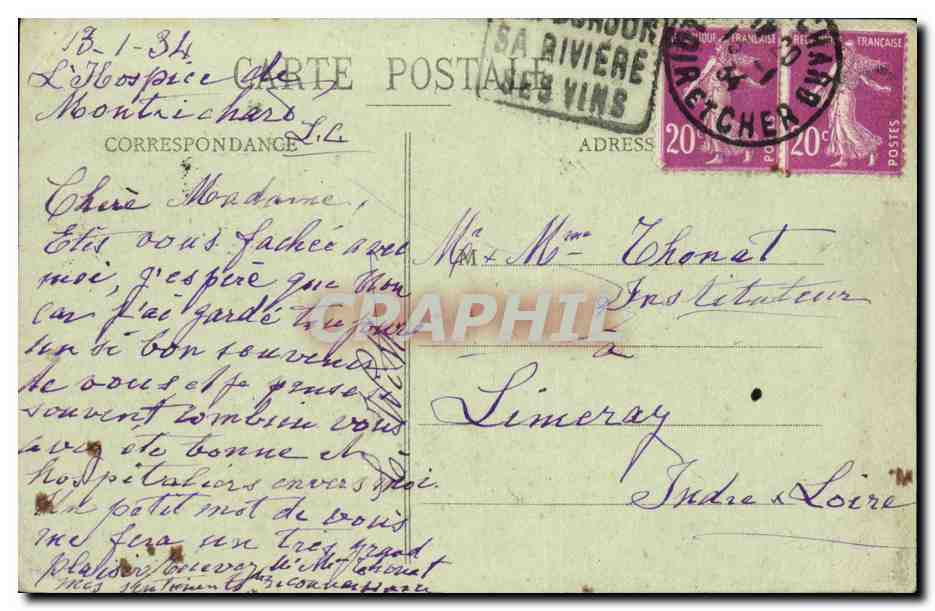 13-1-34
L'Hospice de
Montrichard
L.C.
CARTE POSTALE
CORRESPONDANCE
ADRESS
SA RIVIÈRE
SES VINS
LOIR ET CHER
FRANÇAISE
20c
POSTES
RÉPUBLIQUE FRANÇAISE
20c
POSTES
Chère Madame,
Etes vous fachée avec
moi, j'espère que non
car j'ai gardé toujours
un si bon souvenir
de vous et je pense
souvent combien vous
avez été bonne et
hospitaliers envers moi.
Un petit mot de vous
me fera un très grand
plaisir, recevez Mr Me Thonat
mes sentiments reconnaissan
M
Mr & Mme Thonat
Instituteur
à
Limeray
Indre & Loire
CRAPHIL